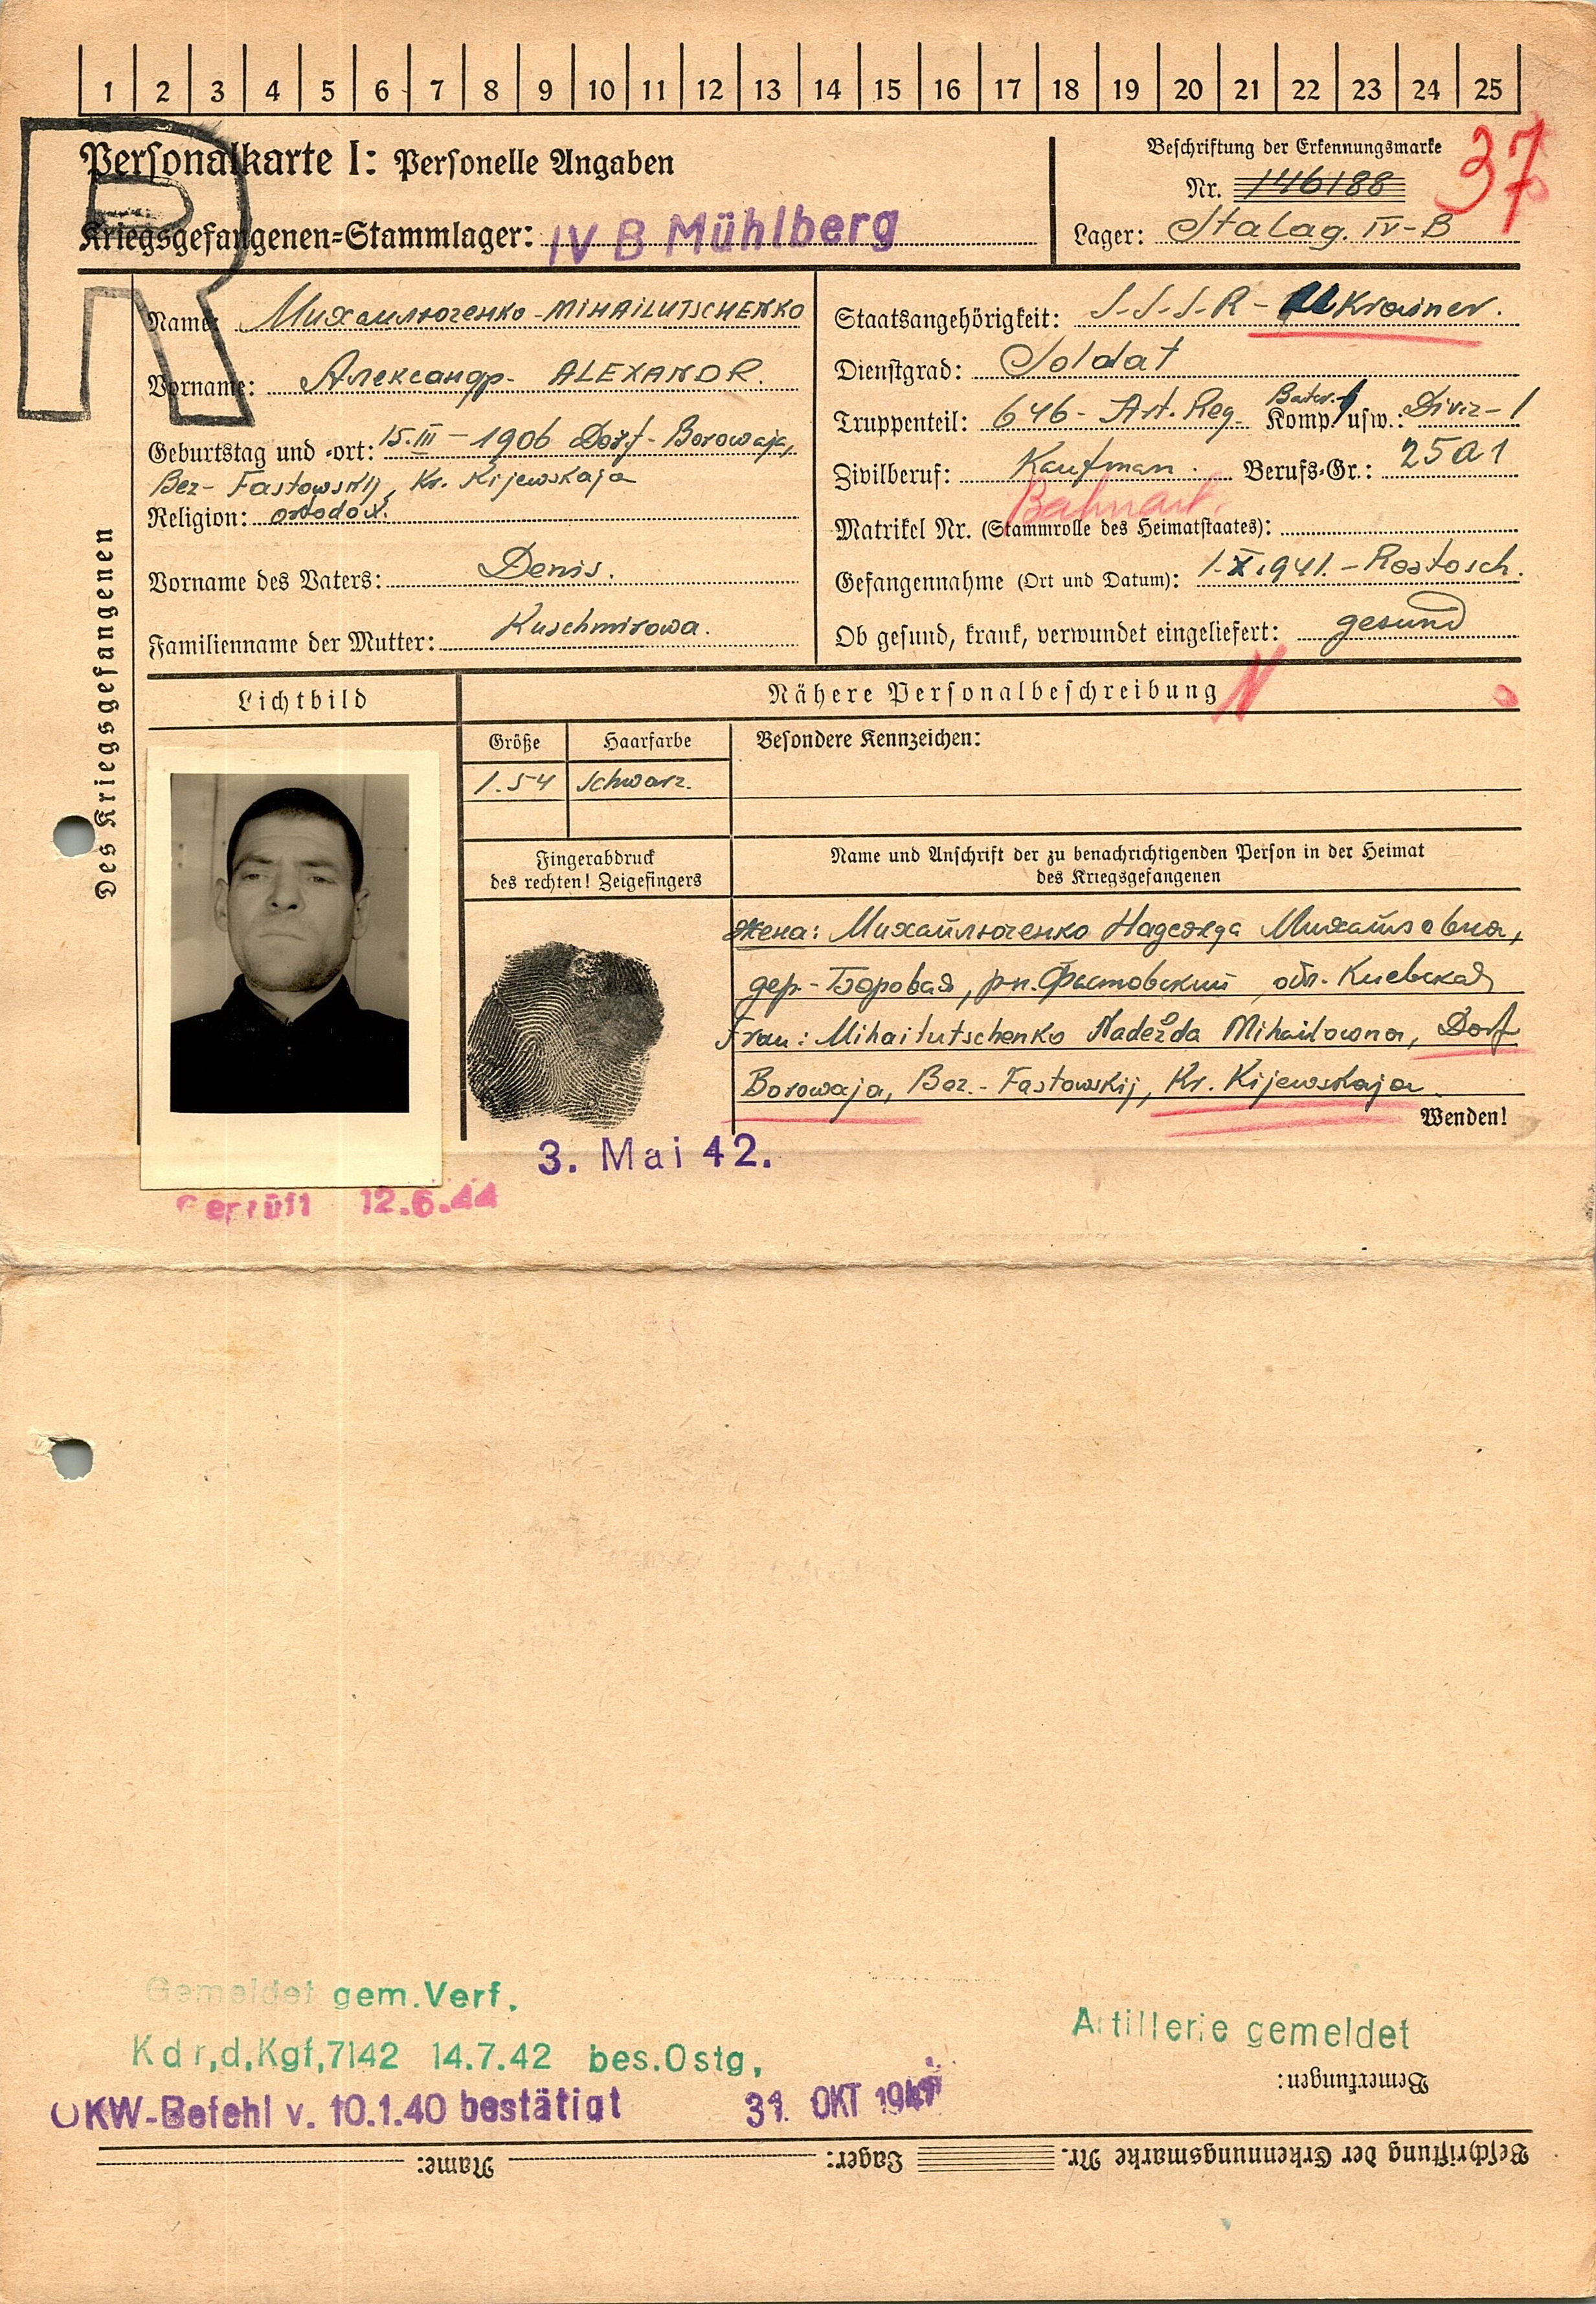 1 2 3 4 5 6 7 8 9 10 11 12 13 14 15 16 17 18 19 20 21 22 23 24 25
R
Personalkarte I: Personelle Angaben
Kriegsgefangenen-Stammlager: IV B Mühlberg
Beschriftung der Erkennungsmarke
37
Nr. 146188
Lager: Stalag. IV-B
Des Kriegsgefangenen
Name: Михайлюченко - MIHAILUTSCHENKO
Vorname: Александр - ALEXANDR.
Geburtstag und -ort: 15.III-1906 Dorf-Borowaja,
Bez- Fastowskij, Kr. Kijewskaja
Religion: ortodox.
Vorname des Vaters: Denis.
Familienname der Mutter: Kuschmirowa.
Staatsangehörigkeit: S-S-S-R- Ukrainer.
Dienstgrad: Soldat
Truppenteil: 646- Art. Reg. Komp. usw.: Diviz-1
Zivilberuf: Kaufman. Berufs-Gr.: 25a1
Bahnarb.
Matrikel Nr. (Stammrolle des Heimatstaates):
Gefangennahme (Ort und Datum): 1.X.1941.-Rostosch.
Ob gesund, krank, verwundet eingeliefert: gesund
Lichtbild
Nähere Personalbeschreibung
N
Größe Haarfarbe Besondere Kennzeichen:
1.54 schwarz.
Fingerabdruck
des rechten! Zeigefingers
Name und Anschrift der zu benachrichtigenden Person in der Heimat
des Kriegsgefangenen
жена: Михайлюченко Надежда Михайловна,
дер-Боровая, рн. Фастовский, обл. Киевская
Frau: Mihailutschenko Nadežda Mihailowna, Dorf
Borowaja, Bez.- Fastowskij, Kr. Kijewskaja
Wenden!
3. Mai 42.
Geprüft 12.6.44
Gemeldet gem. Verf.
Kdr,d,Kgf,7142 14.7.42 bes.Ostg,
OKW-Befehl v. 10.1.40 bestätigt 31. OKT 1941
Artillerie gemeldet
Bemerkungen:
Beschriftung der Erkennungsmarke Nr. Lager: Name: